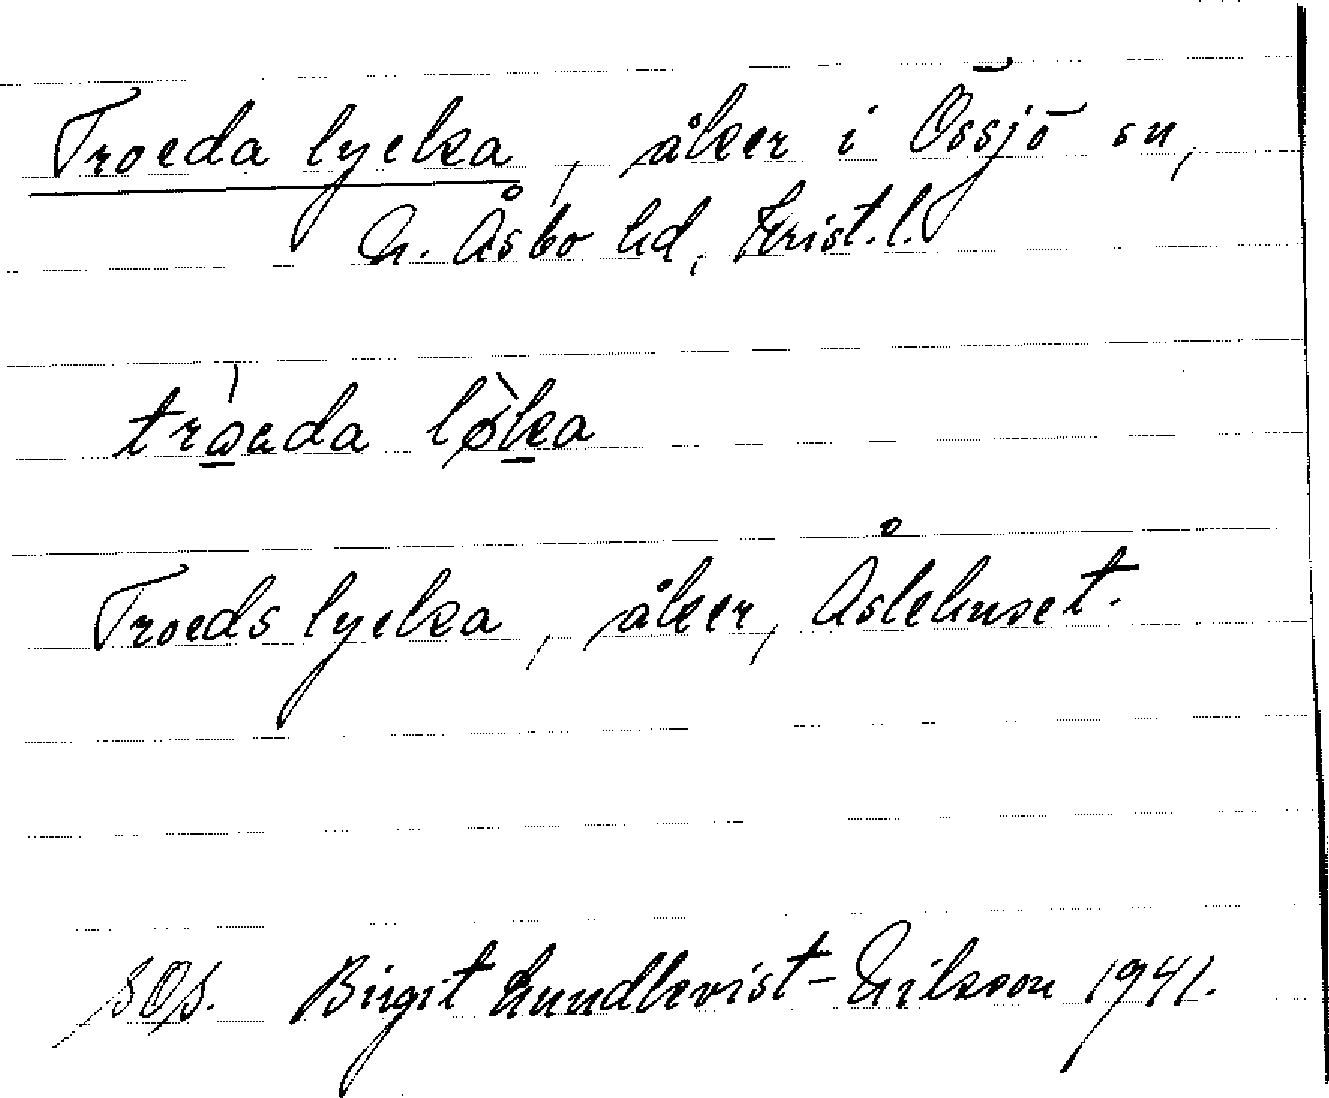 Troeda lycka, åker i Össjö sn,
N. Åsbo hd, Krist. l.
tròeda lø̀ka
Troeds lycka, åker, Åslehuset.
SOS. Birgit Lundkvist-Nilsson 1941.